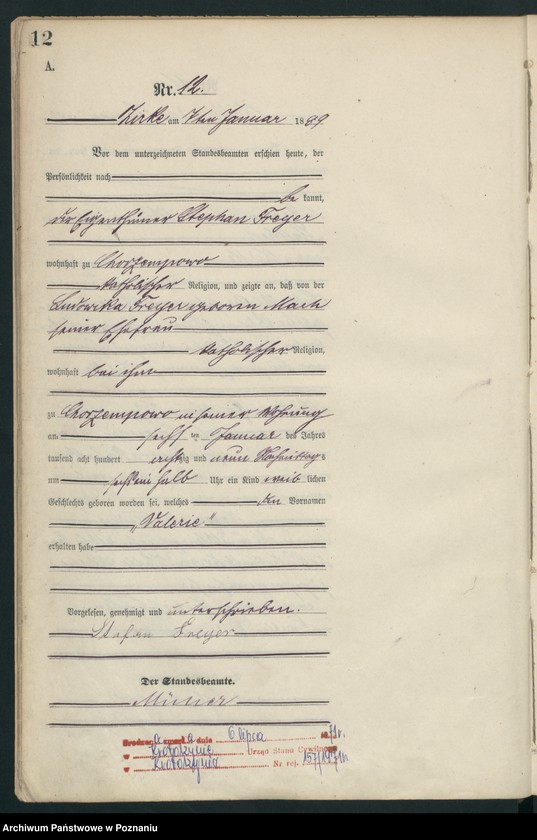 12
A.
Nr. 12.
Zirke am 7ten Januar 1889
Vor dem unterzeichneten Standesbeamten erschien heute, der
Persönlichkeit nach
be kannt,
der Eigenthümer Stephan Freyer
wohnhaft zu Chorzempowo
katholischer Religion, und zeigte an, daß von der
Ludowika Freyer geborene Mach
seiner Ehefrau
katholischer Religion,
wohnhaft bei ihm
zu Chorzempowo in seiner Wohnung
am sechs ten Januar des Jahres
tausend acht hundert achtzig und neun Nachmittags
um sechs ein halb Uhr ein Kind weib lichen
Geschlechts geboren worden sei, welches den Vornamen
„Valerie“
erhalten habe
Vorgelesen, genehmigt und unterschrieben.
Stefan Freyer
Der Standesbeamte.
dnia 6 lipca
Krotoszynie Urząd Stanu Cywilnego
Krotoszynie Nr rej. 157/1971
Archiwum Państwowe w Poznaniu